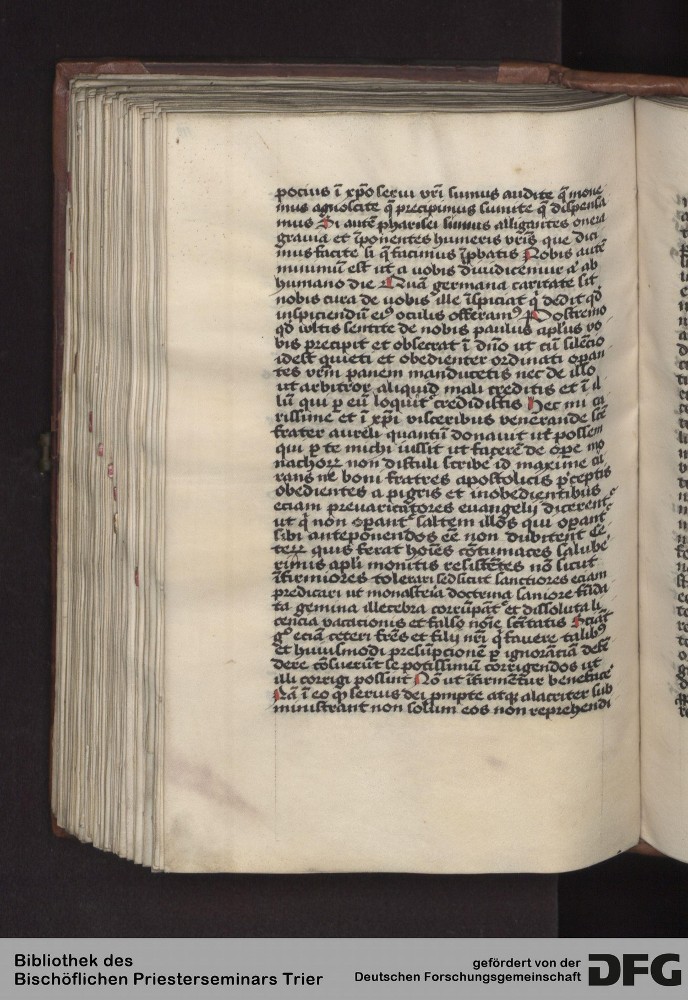 pocius ī xp̄o serui vr̄i sumus audite q̄ mone
mus agnoscite q̄ precipimus sumite q̄ dispensa
mus Si autē pharisei sumus alligantes onera
grauia et īponentes humeris vr̄is que dici
mus facite si q̄ facimus īprobatis Nobis autē
minimum est ut a uobis diuudicemur aᵗ ab
humano die Quā germana caritate sit
nobis cura de uobis ille īspiciat q̄ dedit qd̄
inspiciendū eiꝰ oculis offeramꝰ Postremo
qd̄ wltis sentite de nobis paulus apl̄us vo
bis precipit et obsecrat ī dn̄o ut cū silēcio
idest quieti et obedienter ordinati opan
tes vr̄m panem manducetis nec de illo
ut arbitror aliquid mali creditis et ī il
lū qui ꝑ eū loquit᷑ credidistis Hec mi ca
rissime et ī xp̄i visceribus venerande sc̄e
frater aureli quantū donauit ut possem
qui ꝑ te michi iussit ut facerē de oꝑe mo
nachoꝝ non distuli scribe id maxime cu
rans ne boni fratres apostolicis p̄ceptis
obedientes a pigris et inobedientibus
eciam preuaricatores euangelij dicerent᷑
ut q̄ non oꝑant᷑ saltem illos qui oꝑant᷑
sibi anteponendos eē non dubitent Ce
teꝝ quis ferat hoīes cōtumaces salube
rimis apl̄i monitis resistētes nō sicut
īfirmiores tolerari sed sicut sanctiores eciam
predicari ut monasteria doctrina saniore fūda
ta gemina illecebra corrūpāt᷑ et dissoluta li
cencia vacacionis et falso noīe sc̄itatis Sciāt
gͦ eciam ceteri fr̄es et filij nr̄i q̄ fauere talibꝰ
et huiusmodi presūpcionē ꝑ ignorāciā defē
dere cōsuerūt se potissimū corrigendos ut
illi corrigi possint Nō ut īfirmētur benefice
Nā ī eo qͩ seruis dei ꝓmpte atqꝫ alacriter sub
ministrant non solum eos non reprehendi
Bibliothek des
Bischöflichen Priesterseminars Trier
gefördert von der
Deutschen Forschungsgemeinschaft
DFG